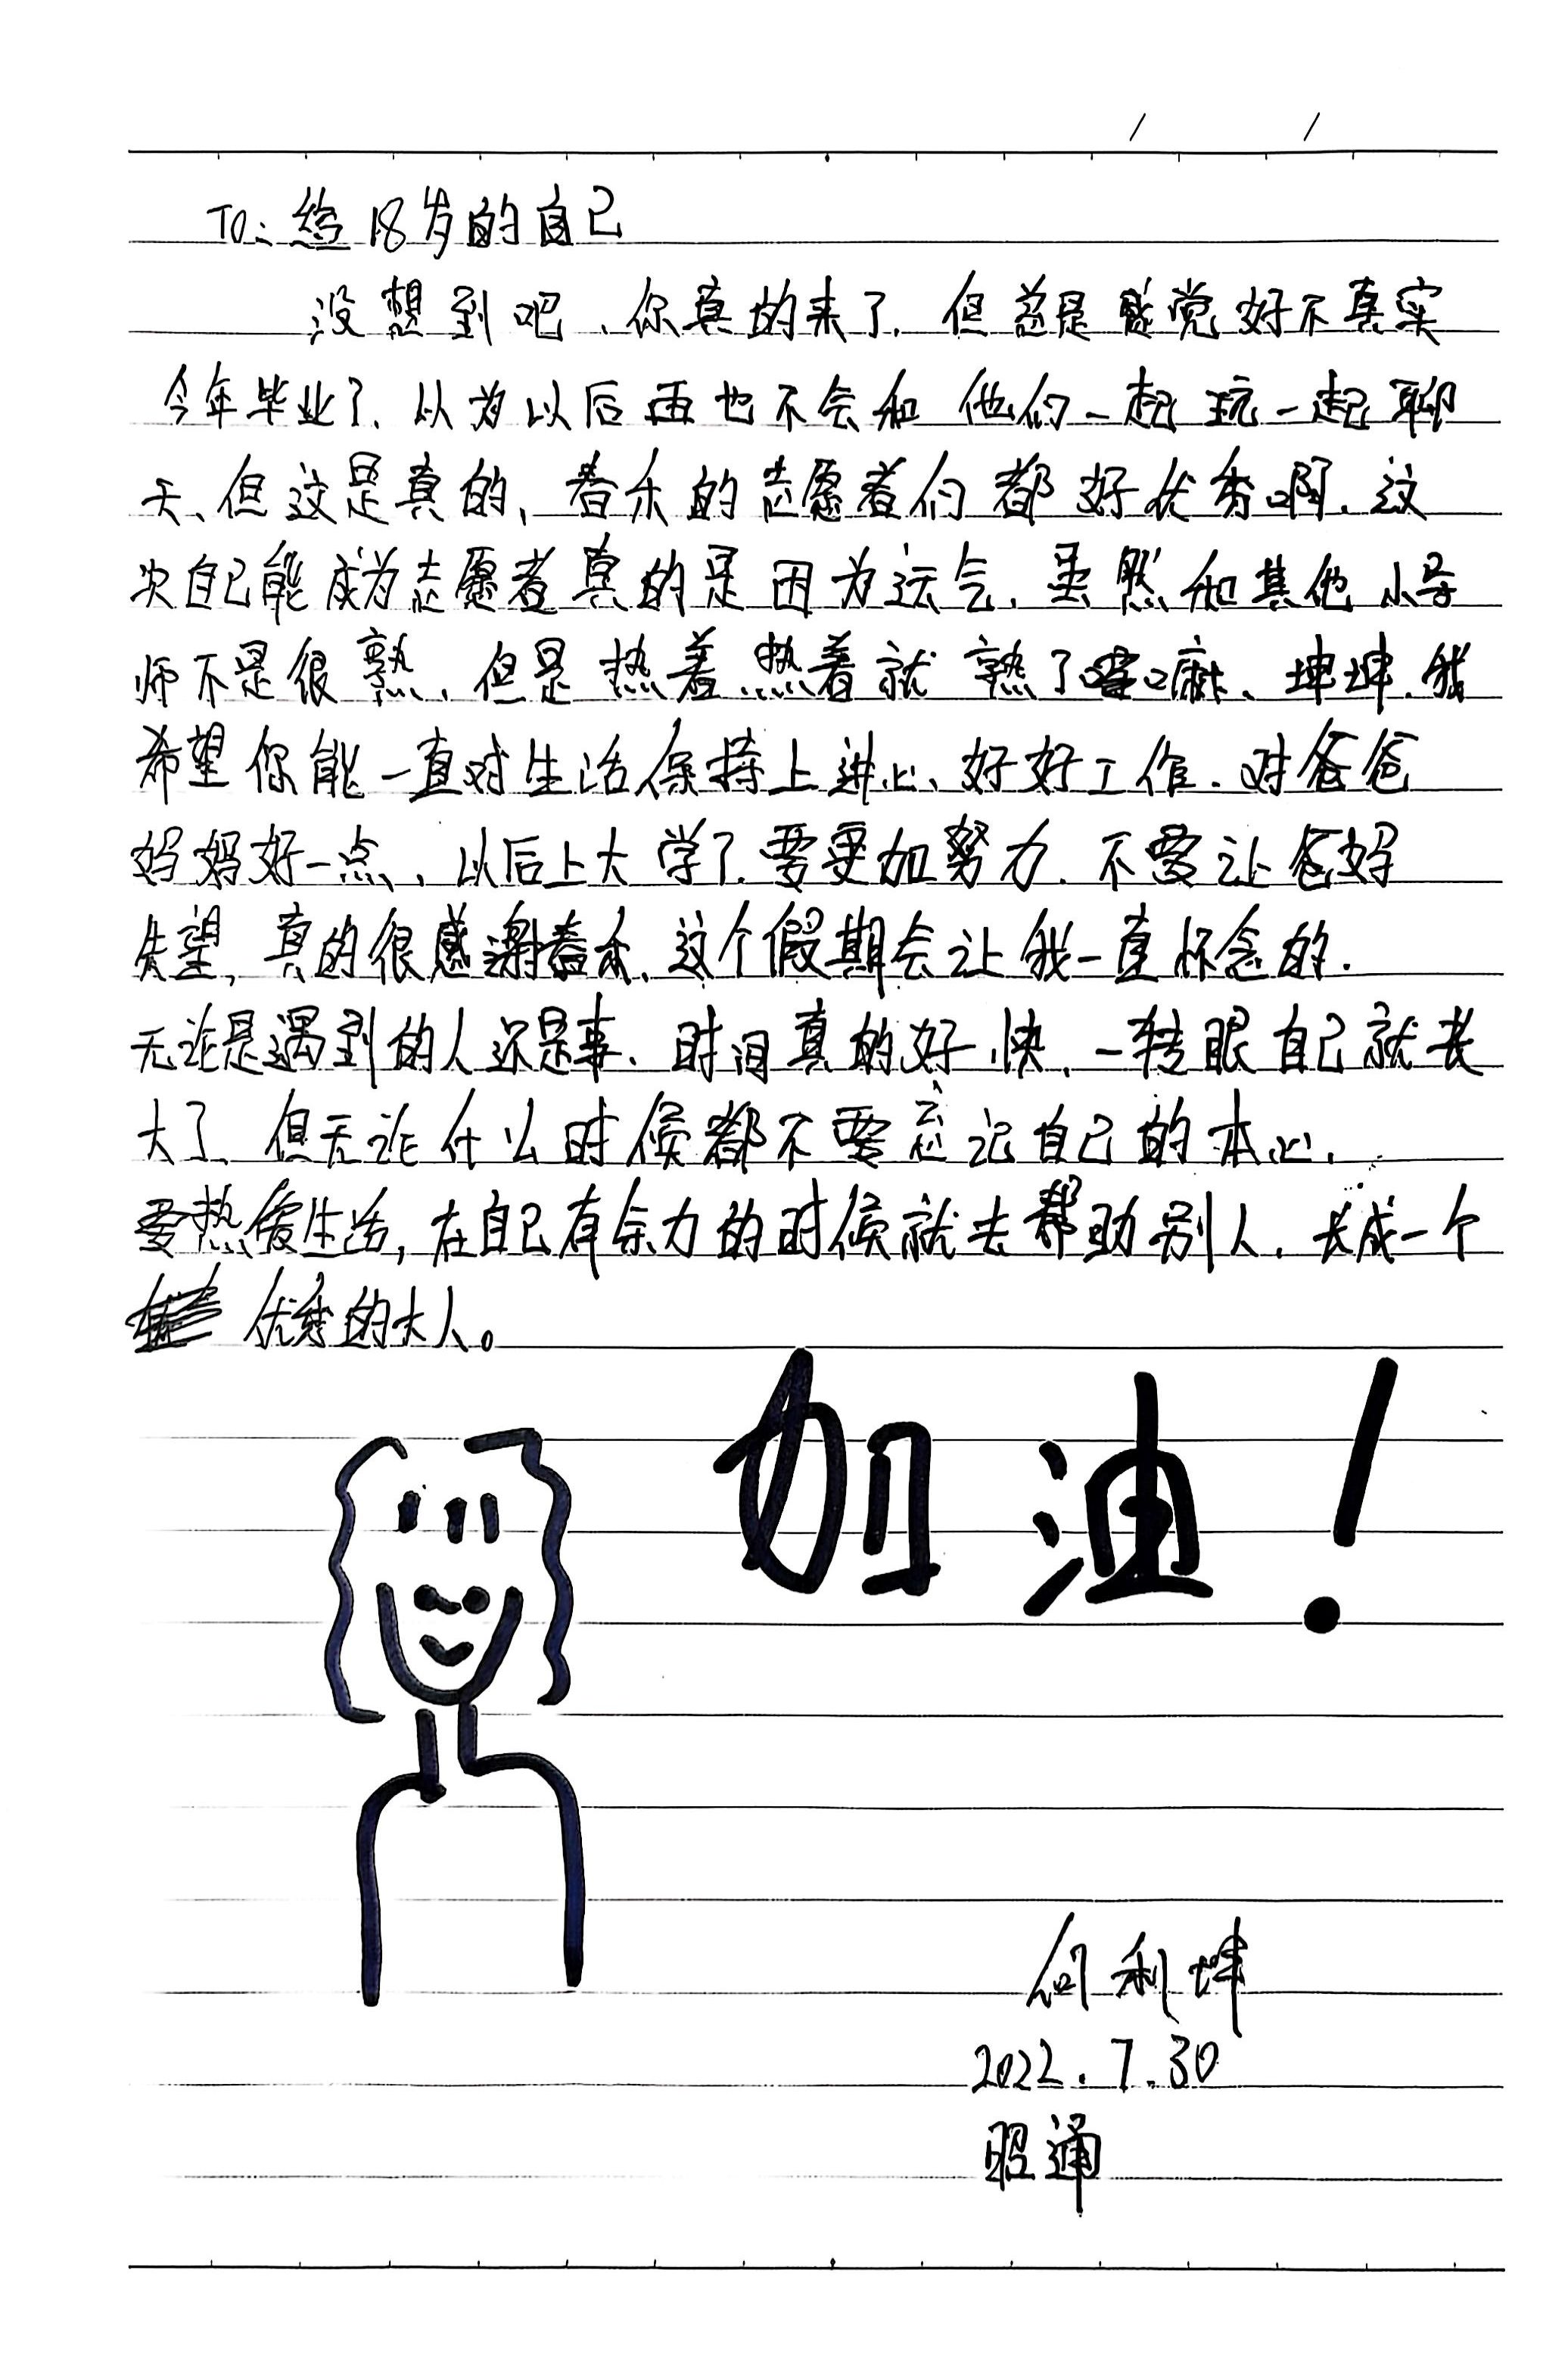 TO：给18岁的自己
没想到吧、你真的来了、但总是感觉好不真实
今年毕业了、以为以后再也不会和他们一起玩一起聊
天、但这是真的、春禾的志愿者们都好优秀啊、这
次自己能成为志愿者真的是因为运气、虽然和其他小导
师不是很熟、但是热着热着就熟了嘛、坤坤、我
希望你能一直对生活保持上进心、好好工作、对爸爸
妈妈好一点、以后上大学了、要更加努力、不要让爸妈
失望，真的很感谢春禾、这个假期会让我一直怀念的.
无论是遇到的人还是事、时间真的好快、一转眼自己就长
大了、但无论什么时候都不要忘记自己的本心、
要热爱生活，在自己有余力的时候就去帮助别人、长成一个
优秀的大人。
加油！
何利坤
2022.7.30
昭通